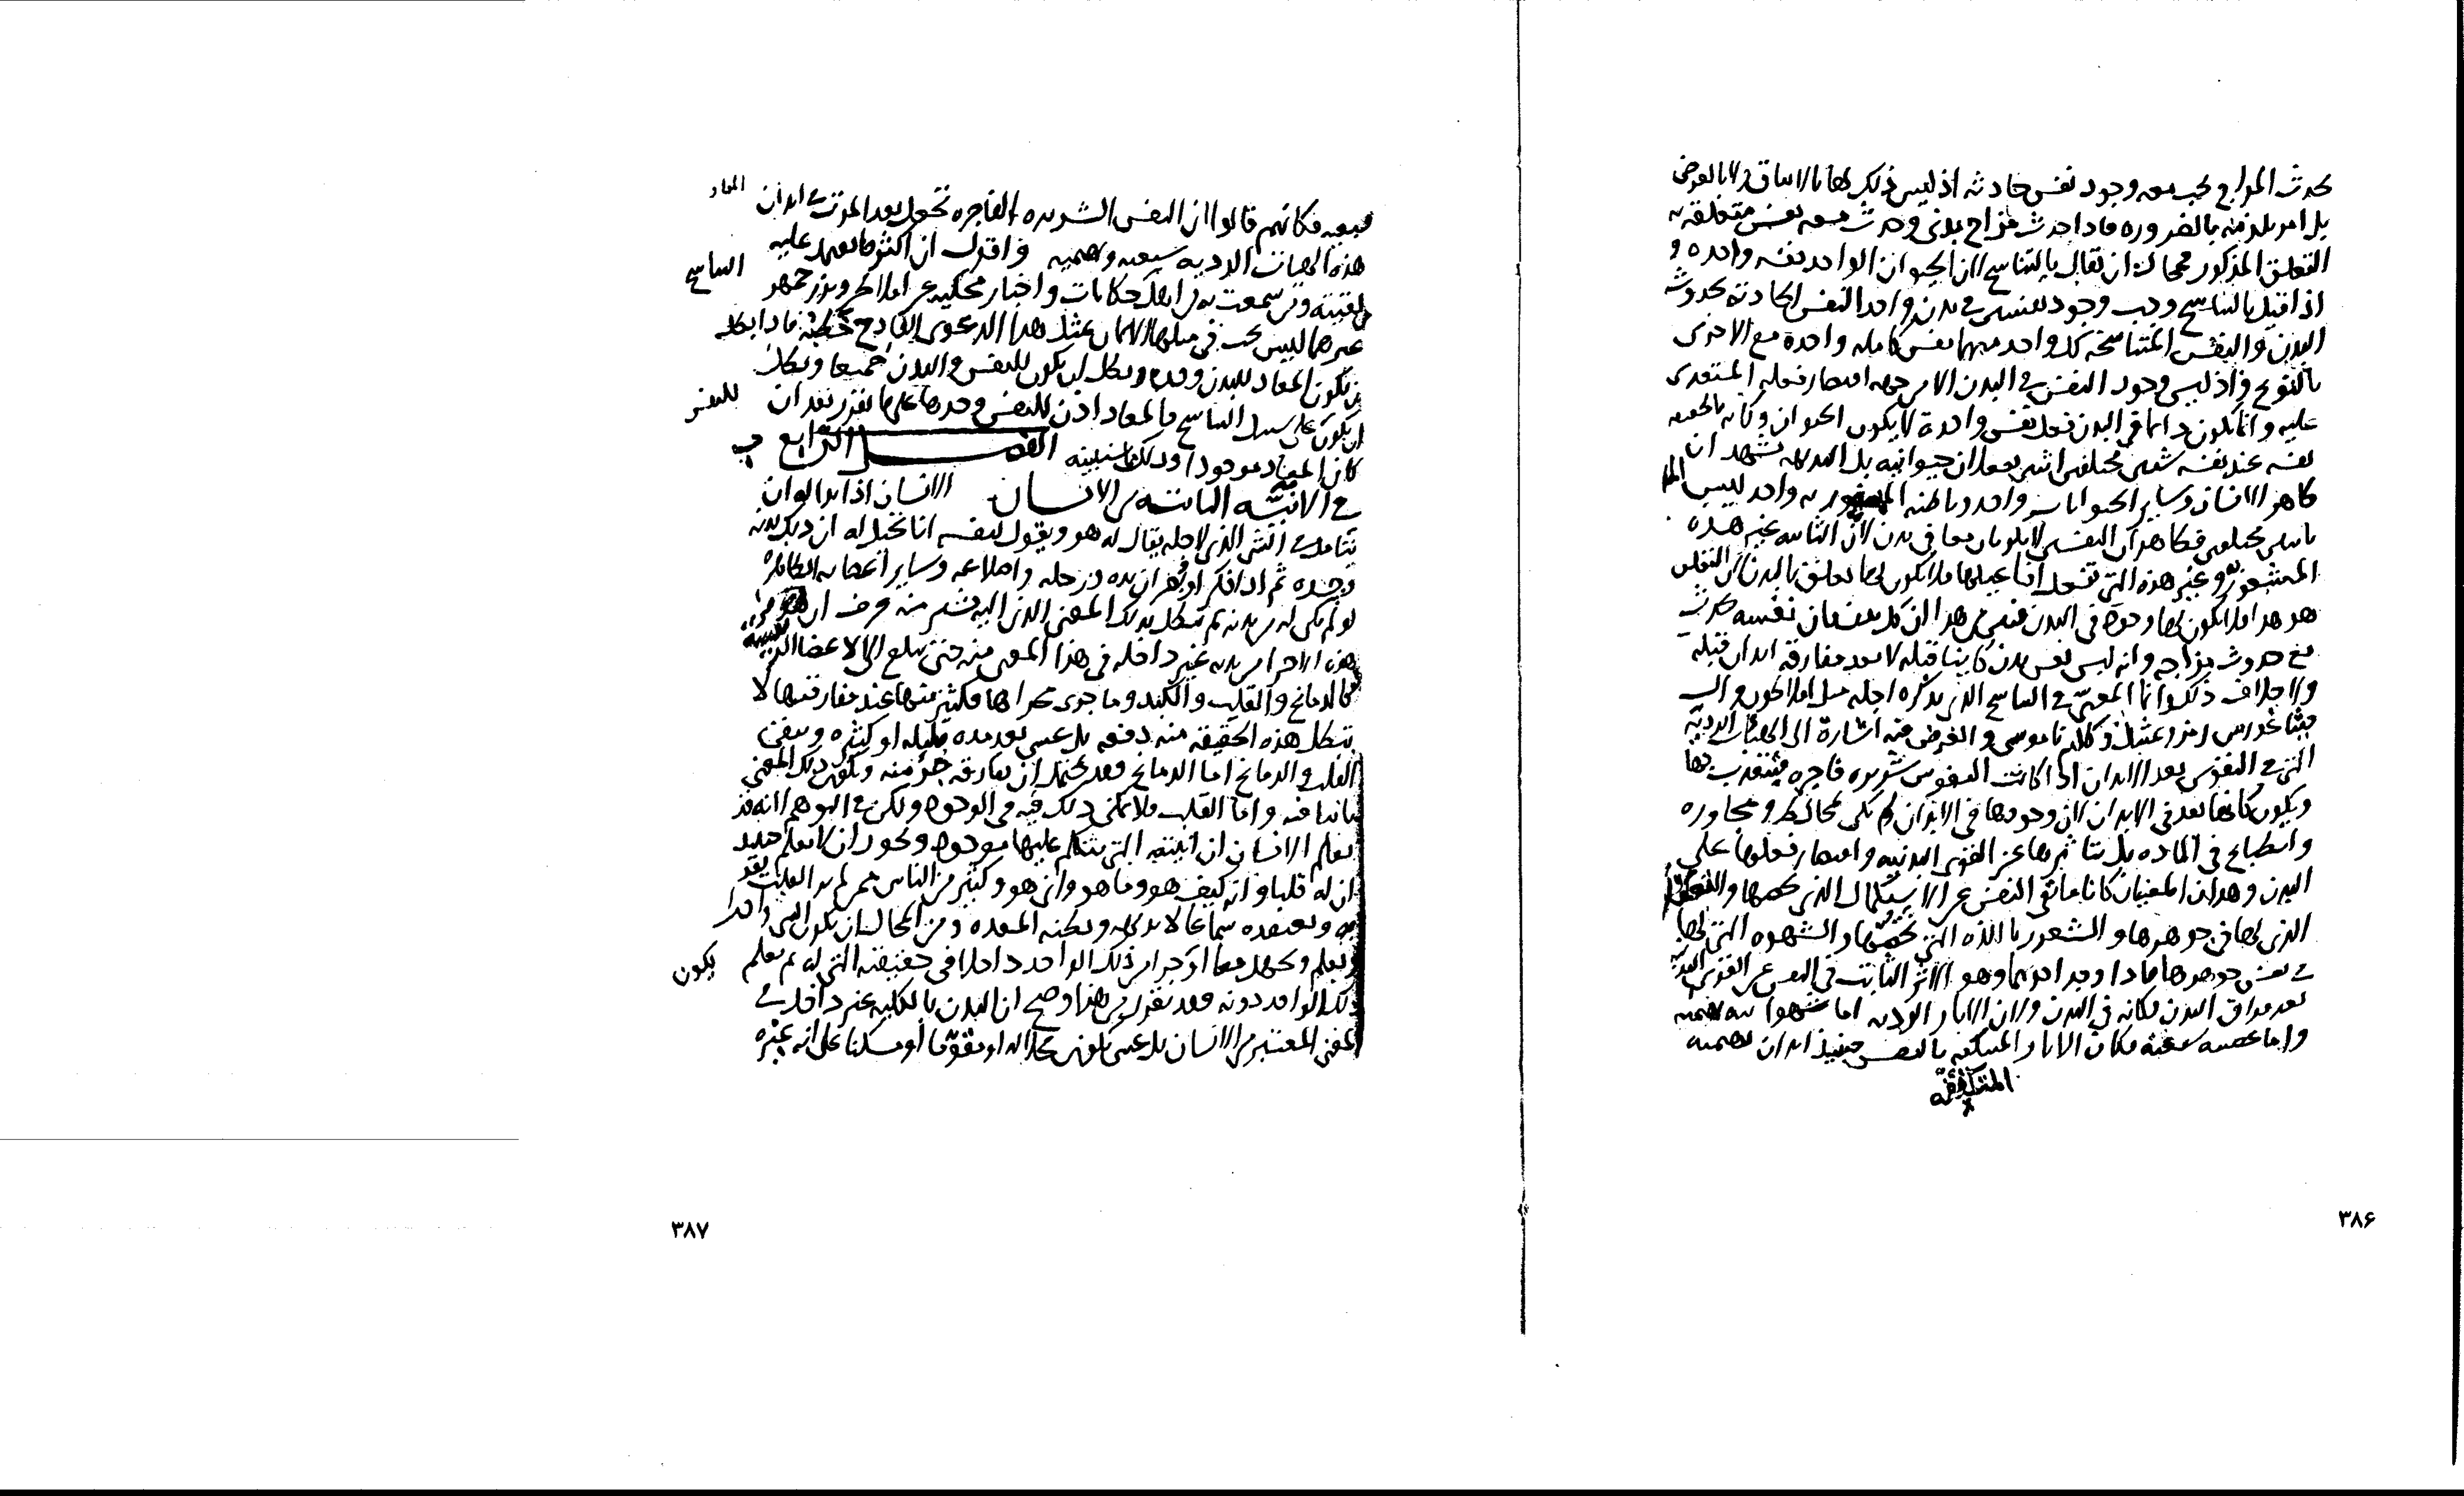 يحدث المزاج يجب معه وجود نفس حادثه اذ ليس ذلك لها بالاتفاق ولا بالعرض
بل امر يلزمه بالضروره فاذا حدث مزاج بدنى وحدث معه نفس متعلقه به
التعلق المذكور فمحال ان يقال بالتناسخ لان الحيوان الواحد نفسه واحده و
اذا قيل بالتناسخ وجب وجود نفسين فى بدن واحد النفس الحادثه بحدوث
البدن والنفس المتناسخه كل واحد منهما نفس كامله واحدة مع الاخرى
بالنوع واذ ليس وجود النفس فى البدن الا من جهه اقتصار فعله المتعدى
عليه وانما يكون دائما فى البدن فعل نفس واحدة لا يكون الحيوان وكانه بالحقيقه
نفسه عند نفسه شيئين مختلفين اثنين يفعلان حيوانيه بل البديهه تشهد ان
ظاهر الانسان وساير الحيوانات واحد وباطنه المشعور به واحد ليس
باثنين مختلفين فظاهر ان النفسين لا يكونان معا فى بدن لان الثانيه غير هذه
المشعور بها وغير هذه التى تفعل افاعيلها فلا يكون لها تعلق بالبدن لان التعلق
هو هذا فلا يكون لها وجود فى البدن فتبين من هذا ان كل بدن فان نفسه تحدث
مع حدوث مزاجه وانه ليس نفس بدن كاينا قبله لا بعد مفارقه ابدان قبله
ولا خلاف ذلك واما المعنى فى التناسخ الذى يذكره اجله مثل افلاطون و
فيثاغورس رمز وعثيل وكلام ناموسى والغرض فيه اشارة الى الهيئات الرديه
التى فى النفوس بعد الابدان اذا كانت النفوس شريره فاجره فتتعذب بها
ويكون كانها بعد فى الابدان لان وجودها فى الابدان لم يكن مخالطه ومجاوره
وانطباع فى الماده بل بتاثيرها عن القوى البدنيه واقتصار فعلها على
البدن وهذان المعنيان كانا عائقى النفس عن الاستكمال الذى يخصها و
الذى لها فى جوهرها والشعور باللذه التى تخصها والشهوه التى لها
فى نفس جوهرها فاذا وجد احدهما وهو الاثر الثابت فى النفس عن القوى البدنيه
بعد فراق البدن فكانه فى البدن ولان الاثار الرديه اما شهوانيه بهيميه
واما غضبيه سبعيه فكان الاثار المتمكنه بالنفس حينئذ ابدان بهيميه
٣٨۶
سبعيه فكانهم قالوا ان النفس الشريره الفاجره تجعل بعد الموت فى ابدان
هذه الهيات الرديه سبعيه وبهيميه واقول ان اكثر ما يعتمد عليه
حكايات واخبار محكيه عن افلاطن وبوزرجمهر
غيرهما ليس يجب فى مثلها الايمان بمثل هذا الدعوى فاذا بطل
ان يكون المعاد للبدن وحده وبطل ان يكون للنفس والبدن جميعا وبطل
ان يكون على سبيل التناسخ فالمعاد اذن للنفس وحدها على ما تقرر بعد ان
كان المعاد موجودا وذلك ما سنبينه الفصل الرابع
فى الانيه الثابته من الانسان الانسان اذا
يتامل فى الشى الذى لاجله يقال له هو ويقول لنفسه انا تخيل له ان ذلك بدنه
وجسده ثم اذا فكر ان يده ورجله واضلاعه وساير اعضائه الظاهره
لو لم يكن له من بدنه لم يبطل بذلك المعنى الذى اليه يشير منه عرف ان
هذه الاجزا من بدنه غير داخله فى هذا المعنى منه حتى يبلغ الى الاعضا الرئيسيه
كالدماغ والقلب والكبد وما جرى مجراها فكثير منها عند مفارقتها لا
يبطل هذه الحقيقه منه دفعه بل عسى بعد مده قليله او كثيره ويبقى
القلب والدماغ اما الدماغ فقد يحتمل ان يفارقه جزء منه ويكون ذلك المعنى
ثابتا منه واما القلب فلا يمكن ذلك فيه فى الوجود ولكن فى الوهم لانه قد
يعلم الانسان ان انيته التى يتكلم عليها موجوده ويجوز ان لا يعلم حينئذ
ان له قلبا وانه كيف هو وما هو واين هو وكثير من الناس ممن لم ير القلب يقر
به ويعتقده سماعا لا بديهه ويظنه المعده ومن المحال ان يكون الشى واحدا
ويعلم ويجهل معا او جزا من ذلك الواحد داخلا فى حقيقته التى له ثم يعلم
ذلك الواحد دونه فقد تقرر من هذا وصح ان البدن بالكليه غير داخل فى
المعنى المعتبر من الانسان بل عسى يكون محلا له او مقوما او مسكنا على انه غيره
٣٨٧